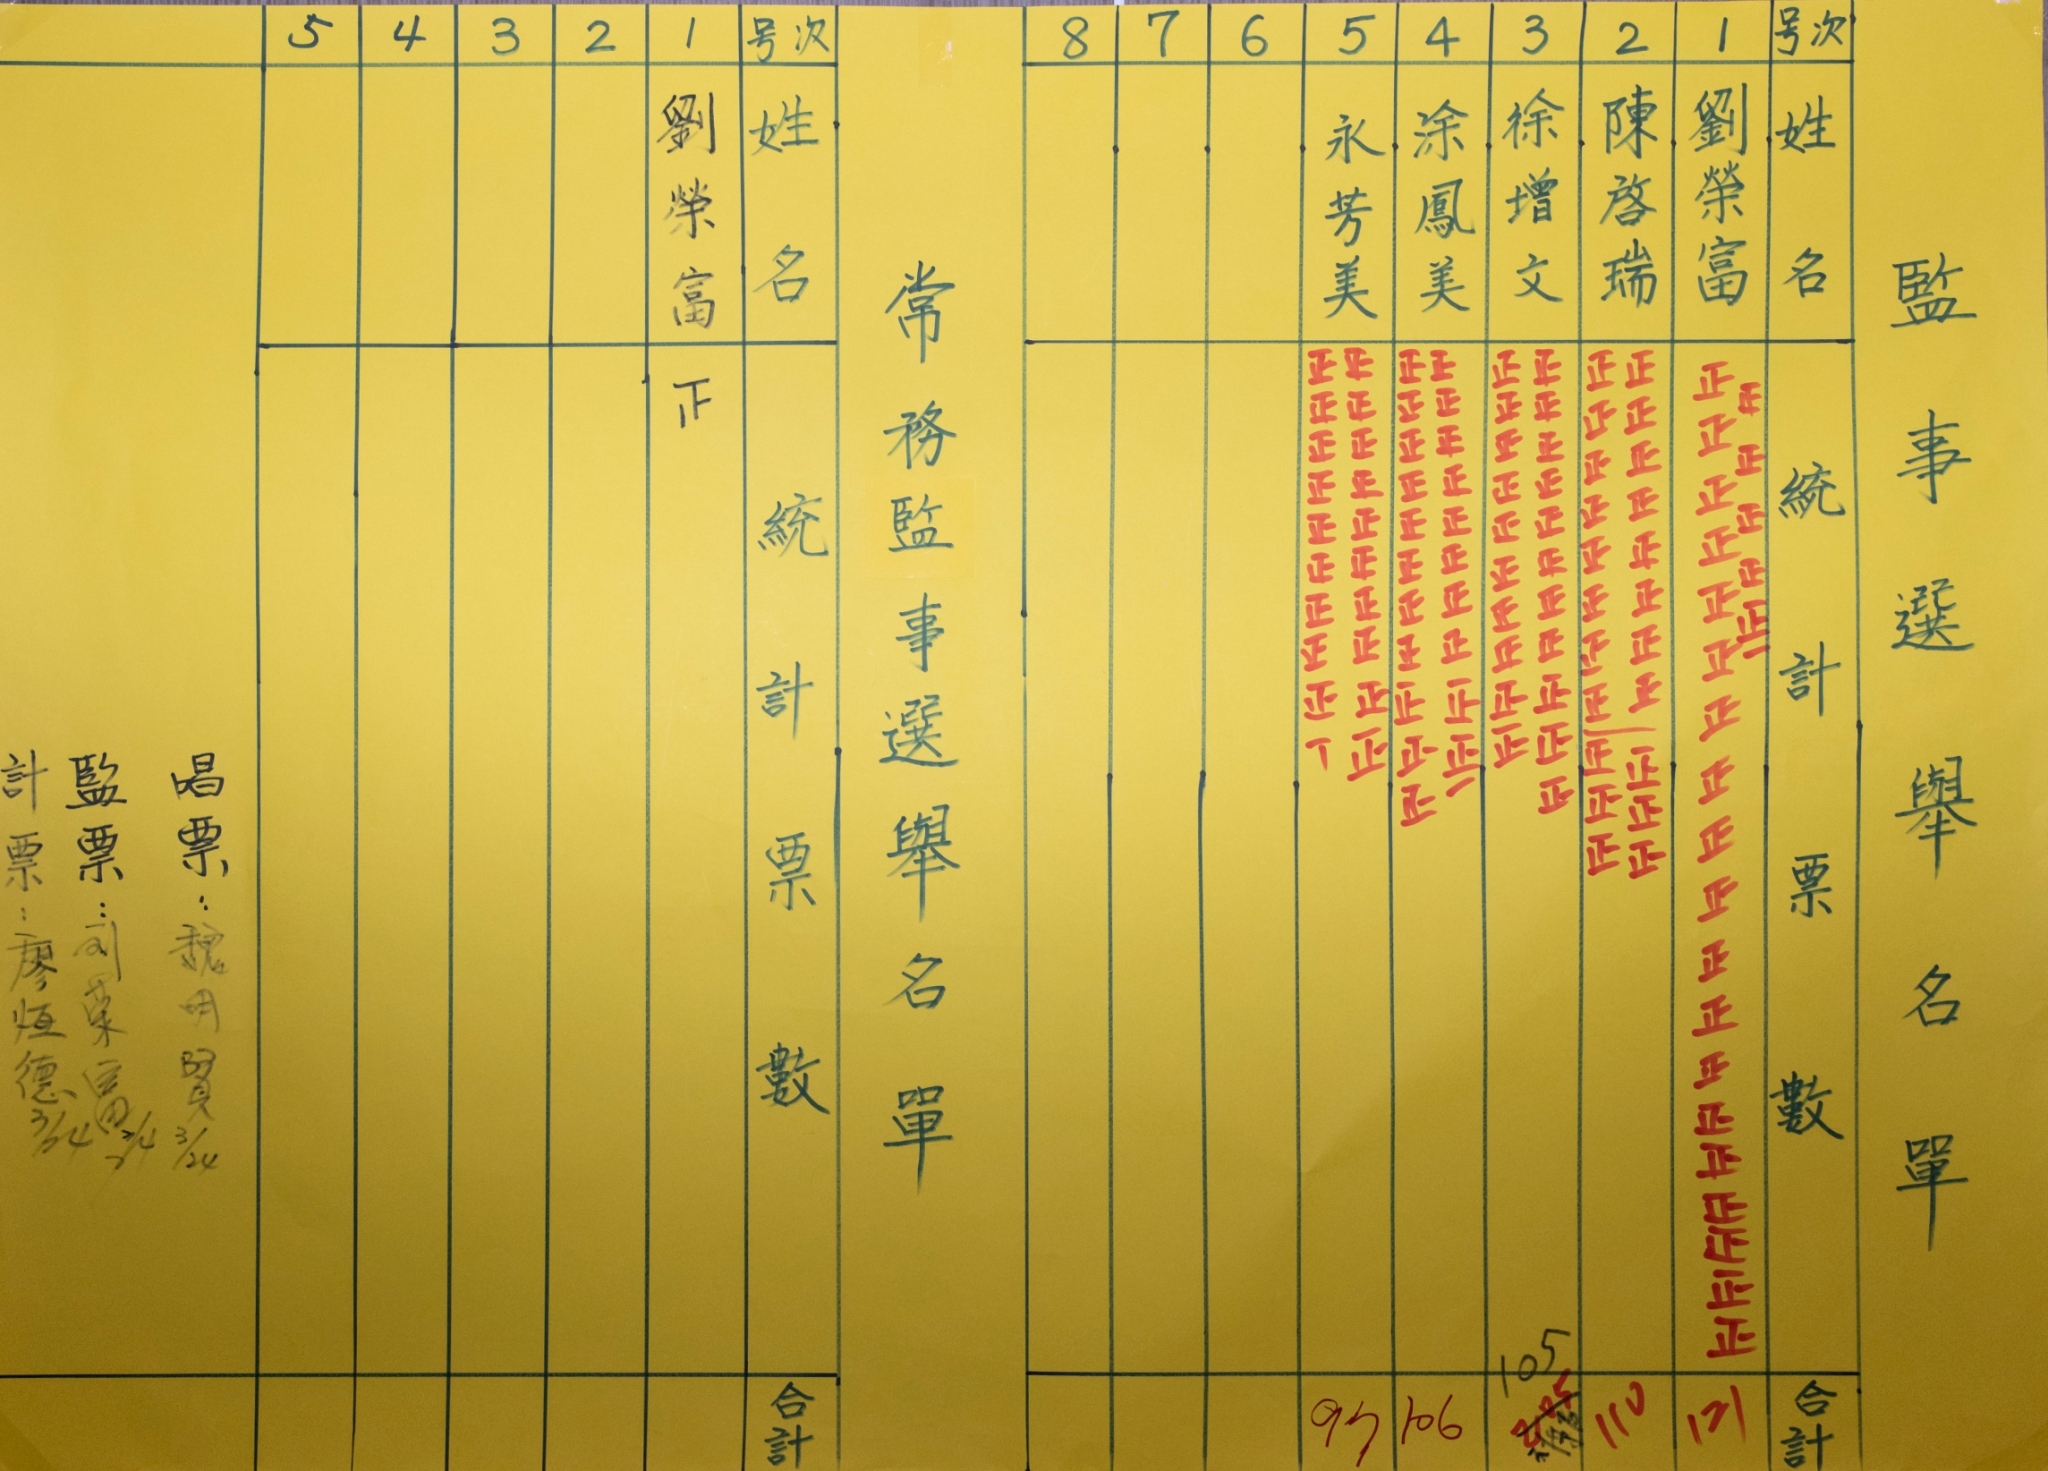 監事選舉名單
号次 姓名 統計票數 合計
1 劉榮富 正正正正正正正正正正正正正正正正正正正 正正正正正一 121
2 陳啓瑞 正正正正正正正正正正正 正正正正正正正正正正正 110
3 徐增文 正正正正正正正正正正正 正正正正正正正正正正 105
4 涂鳳美 正正正正正正正正正正正 正正正正正正正正正正一 106
5 永芳美 正正正正正正正正正正 正正正正正正正正正丅 97
6
7
8
常務監事選舉名單
号次 姓名 統計票數 合計
1 劉榮富 正
2
3
4
5
唱票:魏明賢 3/24
監票:劉榮富
計票:廖恒德 3/24